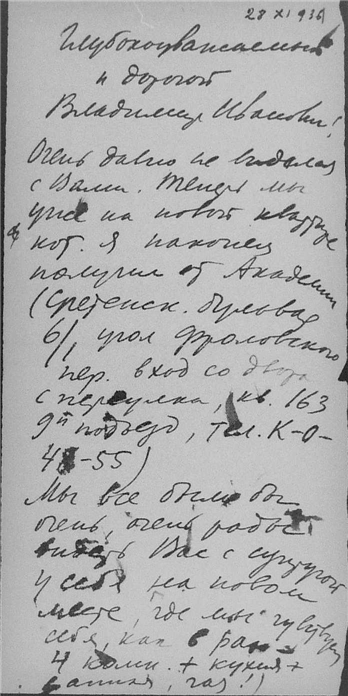 28 XI 1936
Глубокоуважаемый
и дорогой
Владимир Иванович!
Очень давно не видался
с Вами. Теперь мы
уже на новой квартире
кот. я наконец
получил от Академии
(Сретенск. бульвар
6/, угол Фроловского
пер. вход со двора
с переулка, кв. 163
9й подъезд, тел. К-0-
-55)
Мы все были бы
очень, очень рады
видеть Вас с супругой
у себя на новом
месте, где мы чувствуем
себя, как в раю
4 комн. + кухня +
ванная, газ!)